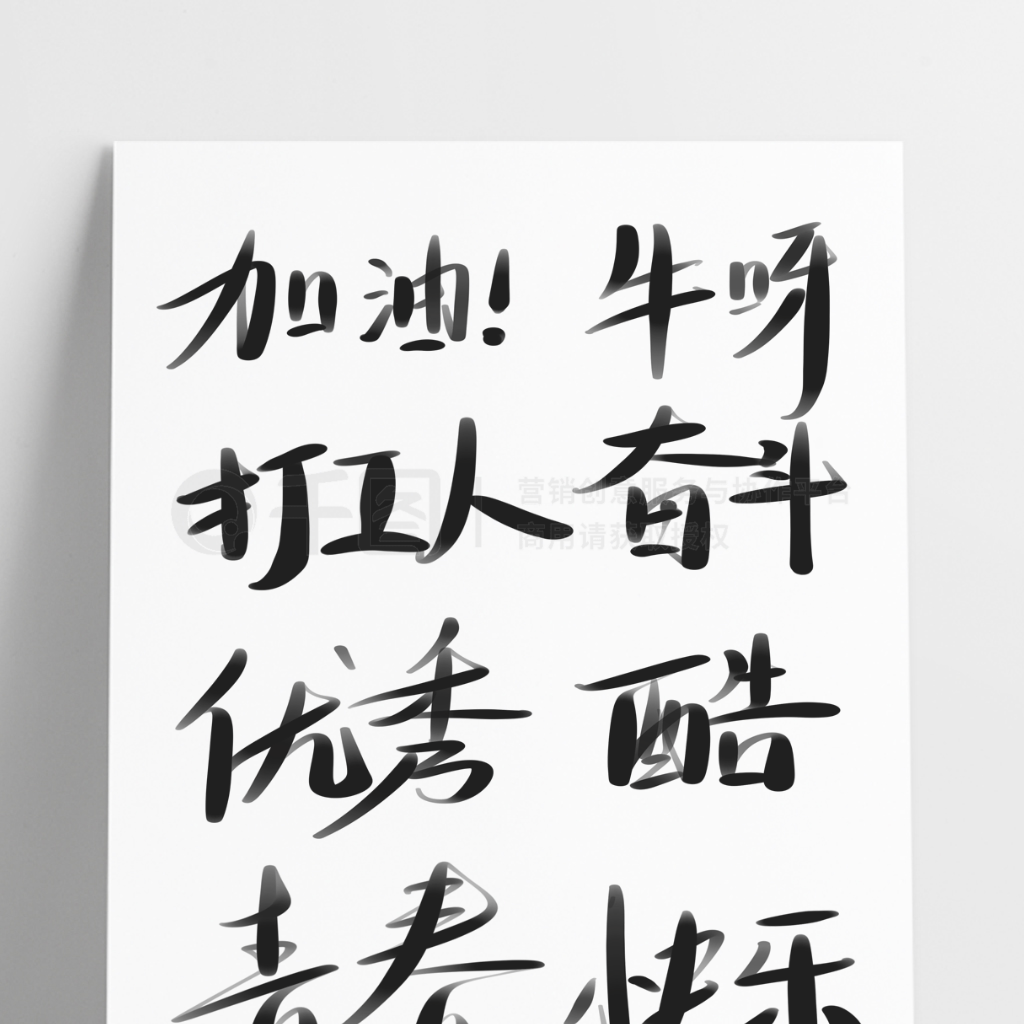 加油! 牛呀
打工人 奋斗
千图 营销创意服务与协作平台
商用请获取授权
优秀 酷
青春 快乐